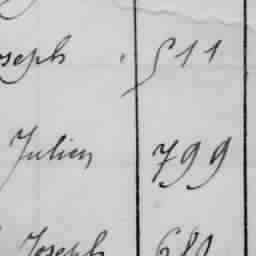 oseph 511
Julien 799
Joseph 680